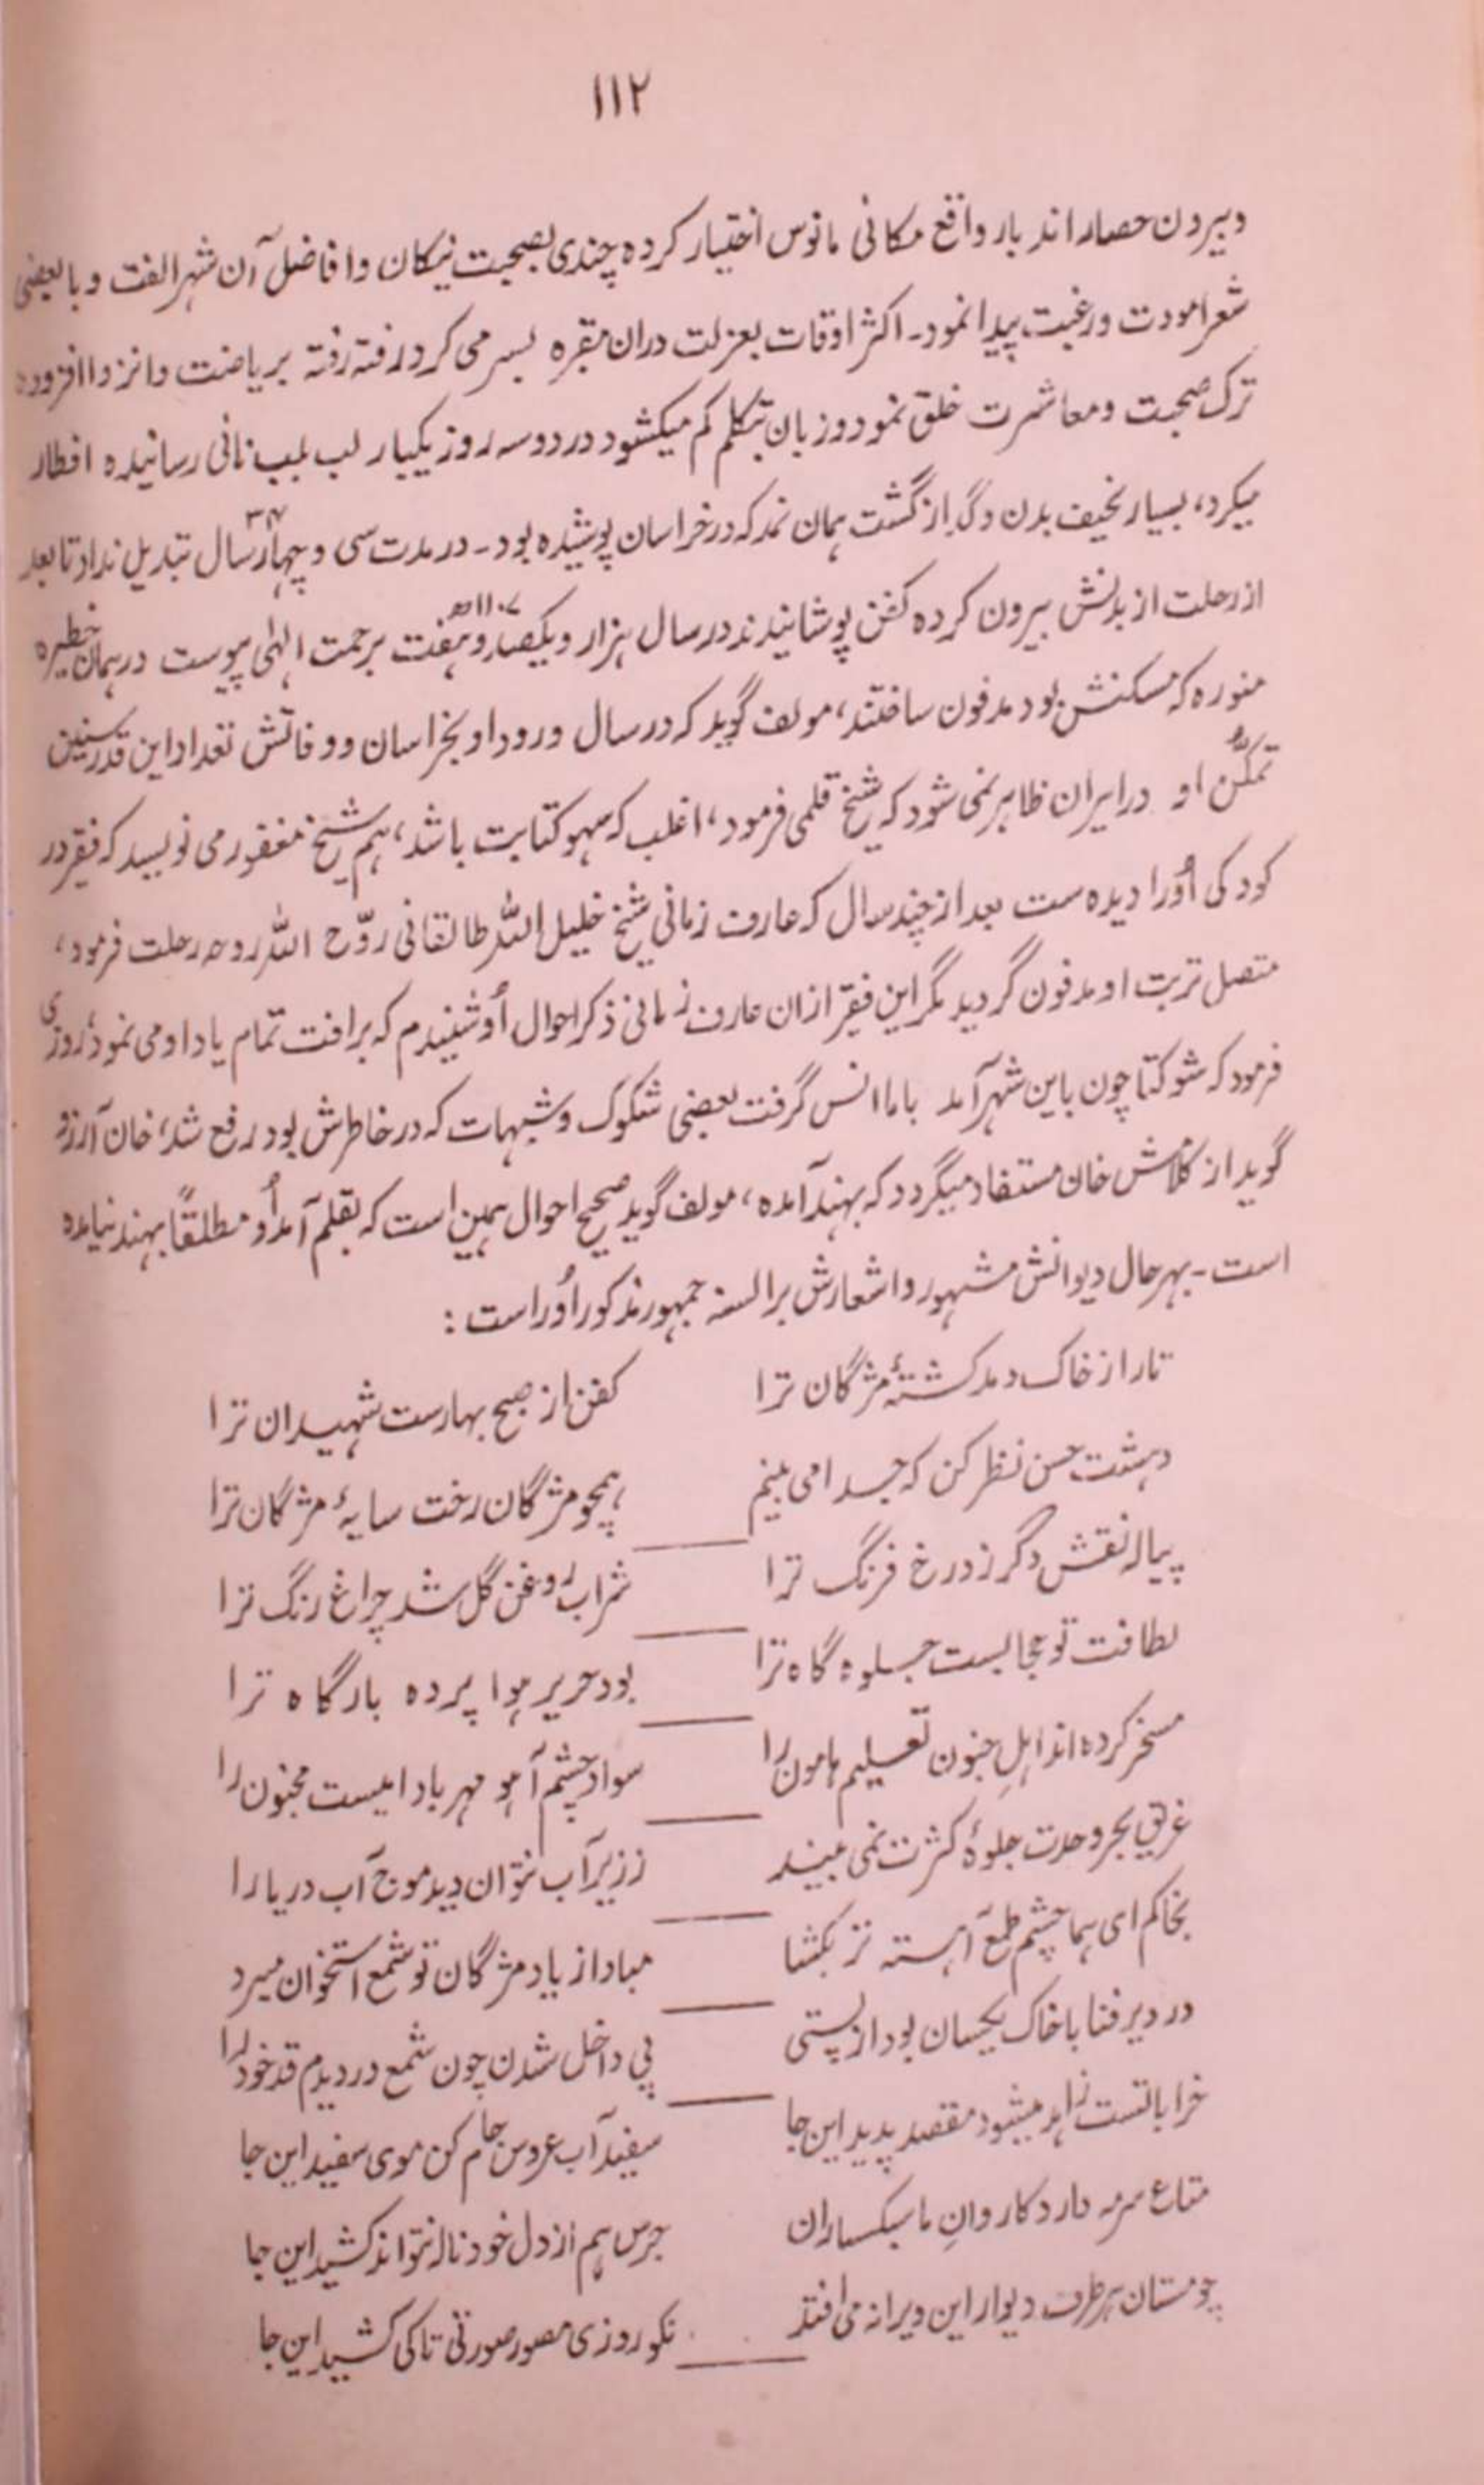 ۱۱۲
وبیرون حصار اندبار واقع مکانی مانوس اختیار کرده چندی بصحبت نیکان وافاضل آن شهر الفت و با بعضی
شعرا مودت و رغبت پیدا نمود۔ اکثر اوقات بعزلت دران مقبره بسر می کرد رفته رفته بریاضت وانزوا افزوده
ترک صحبت ومعاشرت خلق نمود وزبان بتکلم کم میکشود در دوسه روز یکبار لب بلب نانی رسانیده افطار
میکرد، بسیار نحیف بدن وگداز گشت همان نمد که در خراسان پوشیده بود۔ در مدت سی و چهار ۳۴ سال تبدیل نداد تا بعد
از رحلت از بدنش بیرون کرده کفن پوشانیدند در سال هزار ویکصد وهفت ۱۱۰۷ھ برحمت الٰهی پیوست در همان خطیره
منوره که مسکنش بود مدفون ساختند، مولف گوید که در سال ورود او بخراسان ووفاتش تعداد این قدر سنین
تمکّن او در ایران ظاهر نمی شود که شیخ قلمی فرمود، اغلب که سهو کتابت باشد، هم شیخ مغفور می نویسد که فقیر در
کودکی اُورا دیده ست بعد از چند سال که عارف زمانی شیخ خلیل الله طالقانی روّح الله روحه رحلت فرمود،
متصل تربت او مدفون گردید مگر این فقیر ازان عارف زمانی ذکر احوال اُو شنیدم که برافت تمام یاد او می نمود، روزی
فرمود که شوکتا چون باین شهر آمد باما انس گرفت بعضی شکوک وشبهات که در خاطرش بود رفع شد، خان آرزو
گوید از کلامش خان مستفاد میگردد که بهند آمده، مولف گوید صحیح احوال همین است که بقلم آمد اُو مطلقاً بهند نیامده
است۔ بهر حال دیوانش مشهور واشعارش بر السنه جمهور مذکور اُوراست :
تار از خاک دمد کشتهٔ مژگان ترا کفن از صبح بهارست شهیدان ترا
دهشت حسن نظر کن که جدا می بینم همچو مژگان رخت سایهٔ مژگان ترا
پیاله نقش دگر زد رخ فرنگ ترا شراب روغن گل شد چراغ رنگ ترا
لطافت تو حجابست جلوه گاه ترا بود حریر هوا پرده بارگاه ترا
مسخر کرده اند اهلِ جنون تعلیم هامون را سواد چشم آهو مهر بادامیست مجنون را
غریق بحر وحدت جلوهٔ کثرت نمی بیند ز زیر آب نتوان دید موج آب دریا را
بخاکم ای هما چشم طمع آهسته تر بکشا مباد از یاد مژگان تو شمع استخوان میرد
در دیر فنا با خاک یکسان بود از پستی پی داخل شدن چون شمع دزدیدم قد خود را
خراباتست زاهد میشود مقصد پدید این جا سفیدآب عروس جام کن موی سفید این جا
متاع سرمه دارد کاروانِ ما سبکساران جرس هم از دل خود ناله نتواند کشید این جا
چو مستان هر طرف دیوار این ویرانه می افتد نکو روزی مصور صورتی تاکی کشید این جا